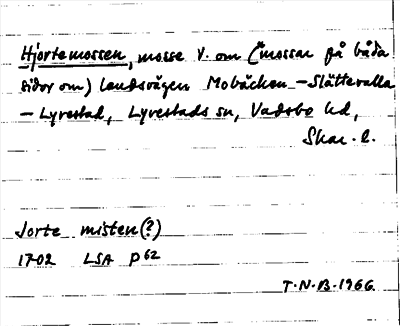 Hjortemossen, mosse V. om ("mossar på båda
sidor om) landsvägen Mobäcken – Slättevalla
– Lyrestad, Lyrestads sn, Vadsbo hd,
Skar. l.
Jorte misten (?)
1702 LSA P 62
T.N.B. 1966.